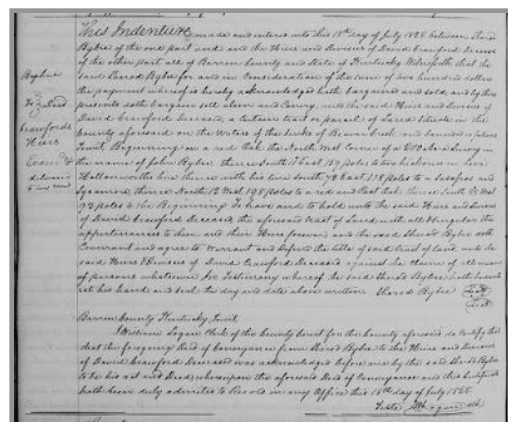 This Indenture made and entered into this 18th day of July 1828 between Sherod
Bybee of the one part and and the Heirs and Devisees of David Crawford Deceased
of the other part all of Barren County and State of Kentucky Witnesseth that the
said Sherod Bybee for and in Consideration of the sum of two hundred dollars
the payment whereof is hereby acknowledged hath bargained and sold and by these
presents doth bargain sell alien and Convey unto the said Heirs and Devisees of
David Crawford Deceased a certain tract or parcel of Land situate in the
County aforesaid on the Waters of the of Beaver Creek and bounded as follows
Towit Beginning on a red Oak the North West Corner of a Survey in
the name of John Bybee thence South East 159 poles to two hickories in
line thence with his line South 78 East 178 poles to a Sasafras and
Sycamore thence North 12 West 198 poles to a red and Post Oak thence South West
193 poles to the Beginning To have and to hold unto the said Heirs and Devisees
of David Crawford Deceased the aforesaid tract of Land with all & singular the
appurtenances to them and their Heirs forever and the said Sherod Bybee doth
Covenant and agree to Warrant and defend the title of said tract of land unto the
said Heirs & Devisees of David Crawford Deceased against the claim of all manner
of persons whatever In Testimony whereof the said Sherod Bybee hath hereunto
set his hand and seal the day and date above written Sherod Bybee Seal
Bybee
To Deed
Crawfords
Heirs
Barren County Kentucky Towit
I William Logan Clerk of the County Court for the County aforesaid do Certify that
that the foregoing Deed of Conveyance from Sherod Bybee to the Heirs and Devisees
of David Crawford Deceased was acknowledged before me by the said Sherod Bybee
to be his act and Deed whereupon the aforesaid Deed of Conveyance and this certificate
hath been duly admitted to Record in my Office this 18th day of July 1828
Teste